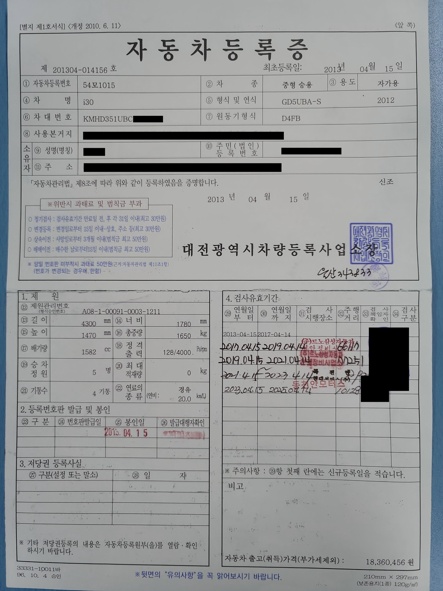 [별지 제1호서식] (개정 2010. 6. 11) (앞 쪽)
자동차등록증
제 201304-014156 호 최초등록일: 2013년 04월 15일
① 자동차등록번호 54모1015 ② 차 종 중형 승용 ③ 용도 자가용
④ 차 명 i30 ⑤ 형식 및 연식 GD5UBA-S 2012
⑥ 차 대 번 호 KMHD351UBC ⑦ 원동기형식 D4FB
⑧ 사용본거지
소유자 ⑨ 성명(명칭) ⑩ 주민(법인)등록번호
⑪ 주 소
「자동차관리법」 제8조에 따라 위와 같이 등록하였음을 증명합니다. 신조
2013 년 04 월 15 일
※위반시 과태료 및 범칙금 부과
대전광역시차량등록사업소장
1. 제 원
⑫ 제원관리번호 A08-1-00091-0003-1211
⑬ 길 이 4300 mm ⑭ 너 비 1780 mm
⑮ 높 이 1470 mm ⑯ 총중량 1650 kg
⑰ 배기량 1582 cc ⑱ 정격출력 128/4000
⑲ 승차정원 5 명 ⑳ 최대적재량 0 kg
기통수 4 연료의 종류 경유 20.0
2. 등록번호판 발급 및 봉인
구 분 번호판발급일 봉인일 발급대행자확인
2013. 04. 15
3. 저당권 등록사실
구분(설정 또는 말소) 일 자
※ 기타 저당권등록의 내용은 자동차등록원부(을)를 열람·확인하시기 바랍니다.
4. 검사유효기간
연월일부터 연월일까지 검사시행장소 주행거리 검사구분
2013-04-15 2017-04-14
2017.04.15 2019.04.14
2019.04.15 2021.04.14
2023.04.15
※ 주의사항 : ㉙항 첫째 란에는 신규등록일을 적습니다.
비고
자동차 출고(취득)가격(부가세제외) : 18,360,456 원
※뒷면의 "유의사항"을 꼭 읽어보시기 바랍니다.
210mm × 297mm